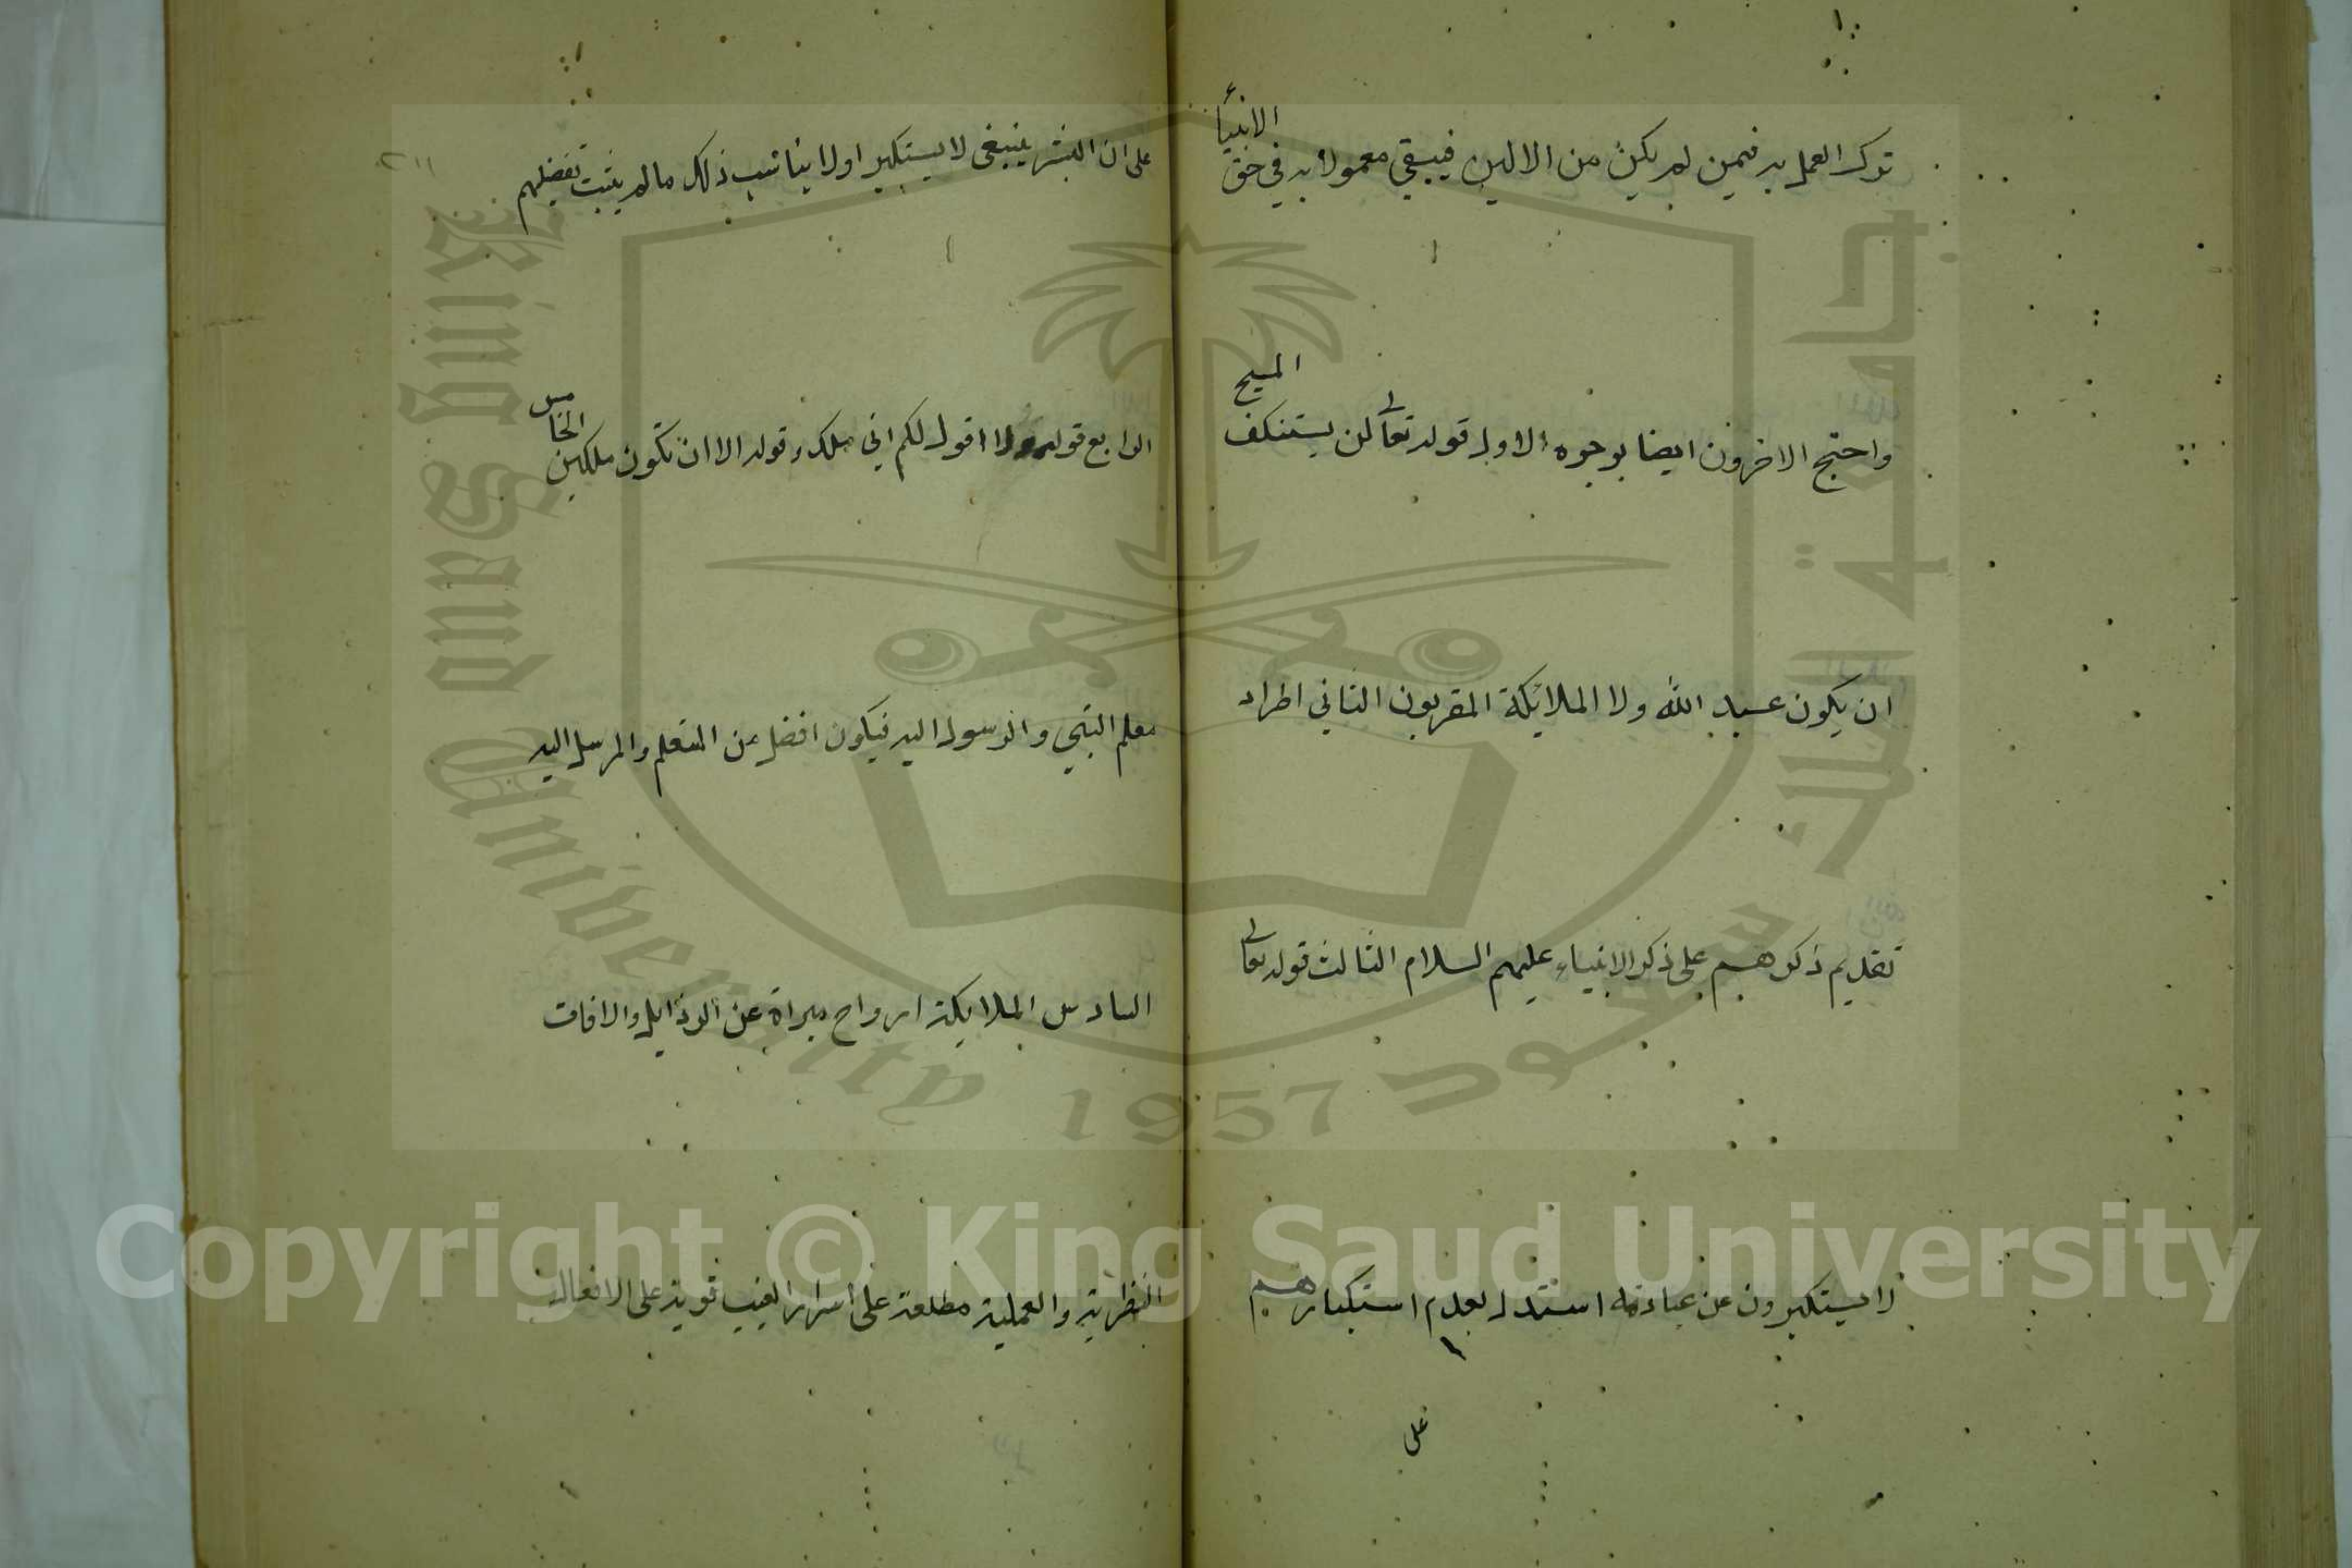 ترك العمل به فيمن لم يكن من الالين فيبقى معمولا به في حق الانبياء
واحتج الاخرون ايضا بوجوه الاول قوله تعالى لن يستنكف المسيح
ان يكون عبد الله ولا الملائكة المقربون الثاني اطراد
تقديم ذكرهم على ذكر الانبياء عليهم السلام الثالث قوله تعالى
لا يستكبرون عن عبادته استدل بعدم استكبارهم
على
على ان البشر ينبغي لا يستكبر اولا يناسب ذلك ما لم يثبت تفضيلهم
الرابع قوله ولا اقول لكم اني ملك وقوله الا ان تكون ملكين الخامس
معلم النبي والرسول اليه فيكون افضل من المتعلم والمرسل اليه
السادس الملايكة ارواح مبراة عن الرذايل والافات
النظرية والعملية مطلعة على اسرار الغيب قوية على الافعال
King Saud University
1957
جامعة الملك سعود
Copyright © King Saud University